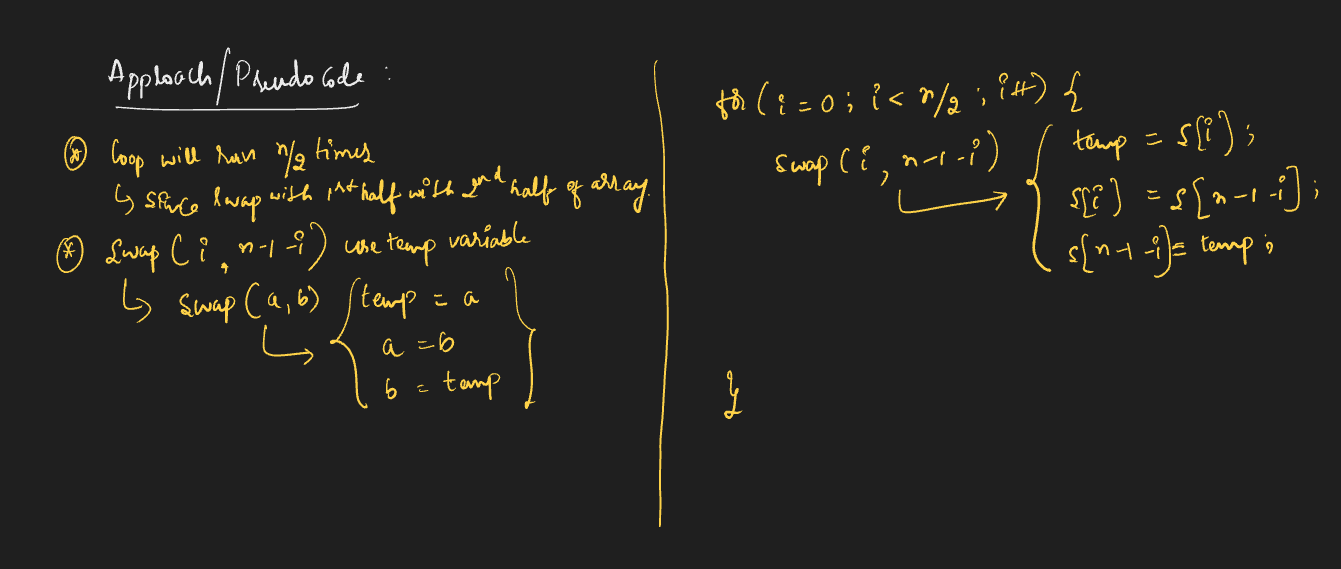 Approach/Pseudo Code :
* Loop will run n/2 times
↳ Since swap with 1st half with 2nd half of array.
* Swap (i, n-1-i) use temp variable
↳ swap (a, b) { temp = a
a = b
b = temp }
for (i = 0 ; i < n/2 ; i++) {
swap (i, n-1-i) → { temp = s[i] ;
s[i] = s[n-1-i] ;
s[n-1-i] = temp ;
}